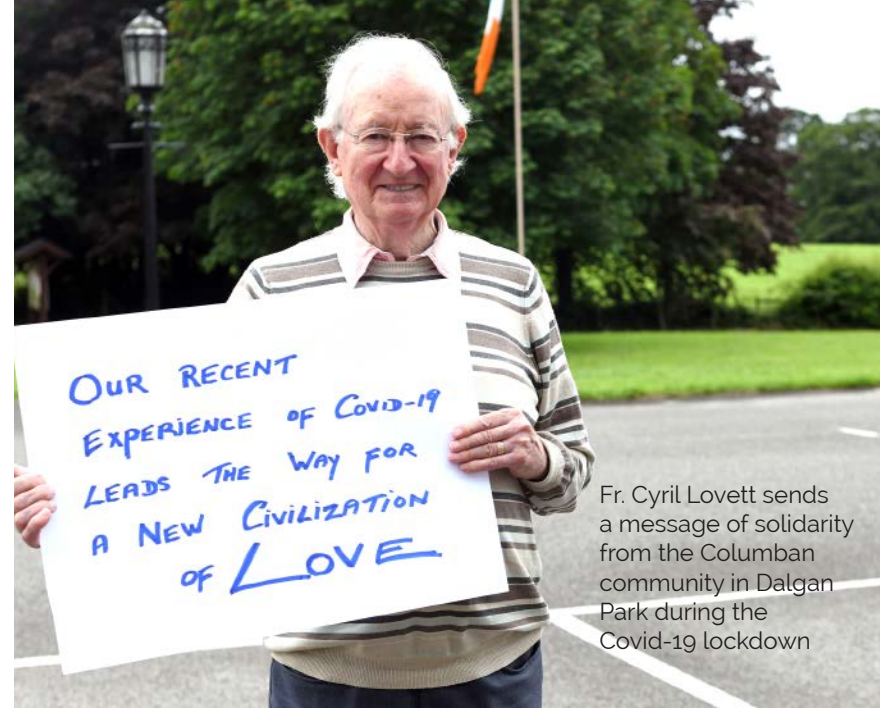 OUR RECENT
EXPERiENCE OF COVID-19
LEADS THE WAY FOR
A NEW CIVILIZATION
OF LOVE
Fr. Cyril Lovett sends
a message of solidarity
from the Columban
community in Dalgan
Park during the
Covid-19 lockdown